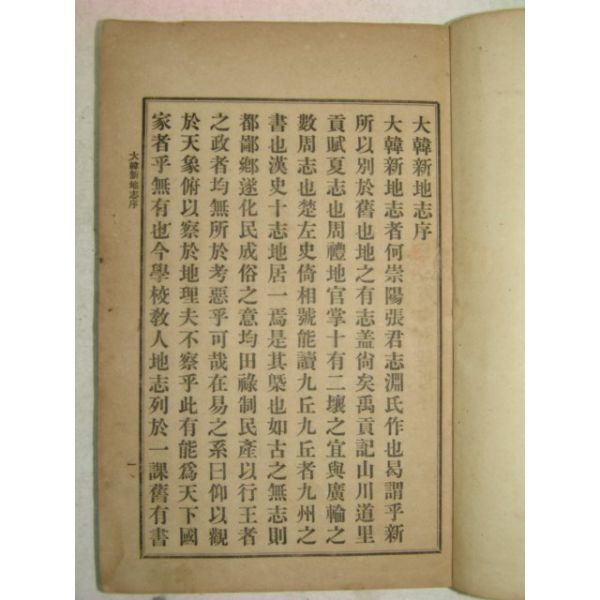 大韓新地志序
大韓新地志者何崇陽張君志淵氏作也曷謂乎新
所以別於舊也地之有志盖尙矣禹貢記山川道里
貢賦夏志也周禮地官掌十有二壤之宜與廣輪之
數周志也楚左史倚相號能讀九丘九丘者九州之
書也漢史十志地居一焉是其槩也如古之無志則
都鄙鄕遂化民成俗之意均田祿制民產以行王者
之政者均無所於考惡乎可哉在易之系曰仰以觀
於天象俯以察於地理夫不察乎此有能爲天下國
家者乎無有也今學校敎人地志列於一課舊有書
大韓新地志序
一